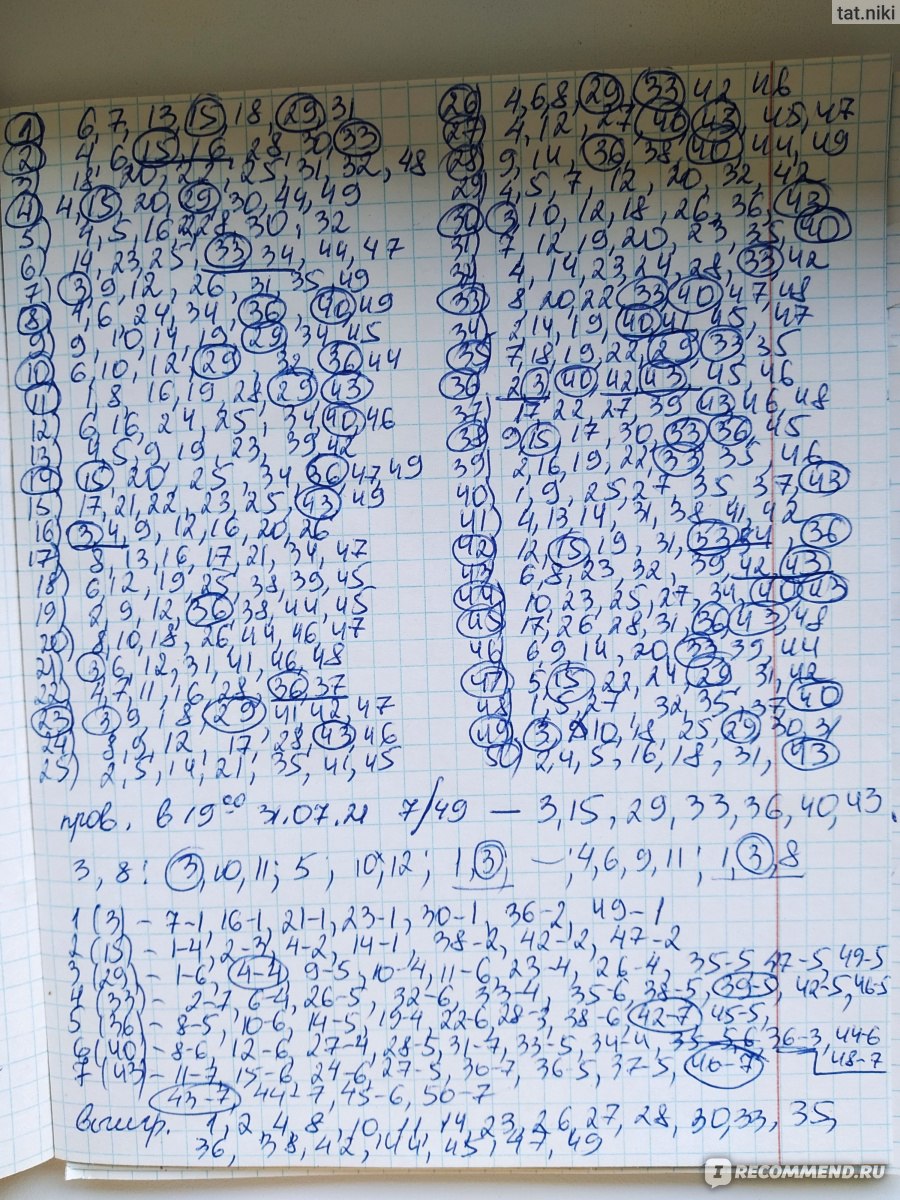 tat.niki
1) 6, 7, 13, 15, 18, 29, 31
2) 4, 6, 15, 16, 28, 30, 33
3) 18, 20, 22, 25, 31, 32, 48
4) 4, 15, 20, 29, 30, 44, 49
5) 4, 5, 16, 22, 28, 30, 32
6) 14, 23, 25, 33, 34, 44, 47
7) 3, 9, 12, 26, 31, 35, 49
8) 4, 6, 24, 34, 36, 40, 49
9) 9, 10, 14, 19, 29, 34, 45
10) 6, 10, 12, 29, 32, 36, 44
11) 1, 8, 16, 19, 28, 29, 43
12) 6, 16, 24, 25, 34, 40, 46
13) 4, 5, 9, 19, 23, 39, 42
14) 15, 20, 25, 34, 36, 47, 49
15) 17, 21, 22, 23, 25, 43, 49
16) 3, 4, 9, 12, 16, 20, 26
17) 8, 13, 16, 17, 21, 34, 47
18) 6, 12, 19, 25, 38, 39, 45
19) 2, 9, 12, 36, 38, 44, 45
20) 8, 10, 18, 26, 44, 46, 47
21) 3, 6, 12, 31, 41, 46, 48
22) 4, 7, 11, 16, 28, 36, 37
23) 3, 9, 18, 29, 41, 42, 47
24) 8, 9, 12, 17, 28, 43, 46
25) 2, 5, 14, 21, 35, 41, 45
26) 4, 6, 8, 29, 33, 42, 46
27) 4, 12, 27, 40, 43, 45, 47
28) 9, 14, 36, 38, 40, 44, 49
29) 4, 5, 7, 12, 20, 32, 42
30) 3, 10, 12, 18, 26, 36, 43
31) 7, 12, 19, 20, 23, 35, 40
4, 14, 23, 24, 28, 33, 42
33) 8, 20, 22, 33, 40, 47, 48
34) 2, 14, 19, 40, 41, 45, 47
35) 7, 18, 19, 22, 29, 33, 35
36) 2, 3, 40, 42, 43, 45, 46
37) 17, 22, 27, 39, 43, 46, 48
38) 9, 15, 17, 30, 33, 36, 45
39) 2, 16, 19, 22, 33, 35, 46
40) 1, 9, 25, 27, 35, 37, 43
41) 4, 13, 14, 31, 38, 41, 42
42) 12, 15, 19, 31, 33, 34, 36
43) 6, 8, 23, 32, 39, 42, 43
44) 10, 23, 25, 27, 34, 40, 43
45) 17, 26, 28, 31, 36, 43, 48
46) 6, 9, 14, 20, 33, 39, 44
47) 5, 15, 22, 24, 29, 31, 42
48) 1, 5, 27, 32, 35, 37, 40
49) 3, 10, 18, 25, 29, 30, 31
50) 2, 4, 5, 16, 18, 31, 43
пров. в 19 00 31.07.21 7/49 — 3, 15, 29, 33, 36, 40, 43.
3, 8: 3, 10, 11; 5; 10, 12; 1, 3, —; 4, 6, 9, 11; 1, 3, 8
1 (3) – 7-1, 16-1, 21-1, 23-1, 30-1, 36-2, 49-1
2 (15) – 1-4, 2-3, 4-2, 14-1, 38-2, 42-2, 47-2
3 (29) – 1-6, 4-4, 9-5, 10-4, 11-6, 23-4, 26-4, 35-5, 47-5, 49-5
4 (33) – 2-7, 6-4, 26-5, 32-6, 33-4, 35-6, 38-5, 39-5, 42-5, 46-5
5 (36) – 8-5, 10-6, 14-5, 19-4, 22-6, 28-3, 38-6, 42-7, 45-5,
6 (40) – 8-6, 12-6, 27-4, 28-5, 31-7, 33-5, 34-4, 36-3, 44-6
48-7
7 (43) – 11-7, 15-6, 24-6, 27-5, 30-7, 36-5, 37-5, 40-7
43-7, 44-7, 45-6, 50-7
выигр. 1, 2, 4, 8, 10, 11, 14, 23, 26, 27, 28, 30, 33, 35,
36, 38, 42, 44, 45, 47, 49
IRECOMMEND.RU